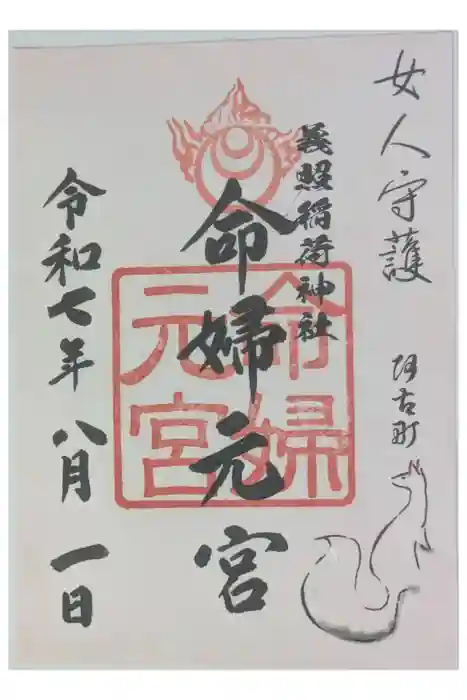 女人守護
阿古町
義照稲荷神社
命婦元宮
命婦元宮
令和七年 八月 一日